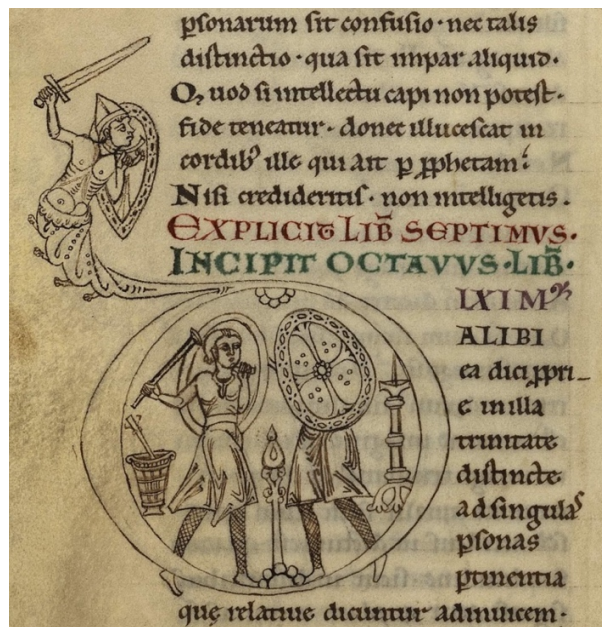 psonarum sit confusio · nec talis
distinctio · qua sit impar aliquid ·
Q, uod si intellectu capi non potest ·
fide teneatur · donec illucescat in
cordib' ille qui ait p pphetam:
Nisi credideritis · non intelligetis .
EXPLICIT LIB̄ SEPTIMVS ·
INCIPIT OCTAVVS · LIB̄ ·
IXIM'
ALIBI
ea dici ppri_
e in illa
trinitate
distincte
ad singulas
psonas
ptinentia
quę relatiue dicuntur adinuicem ·